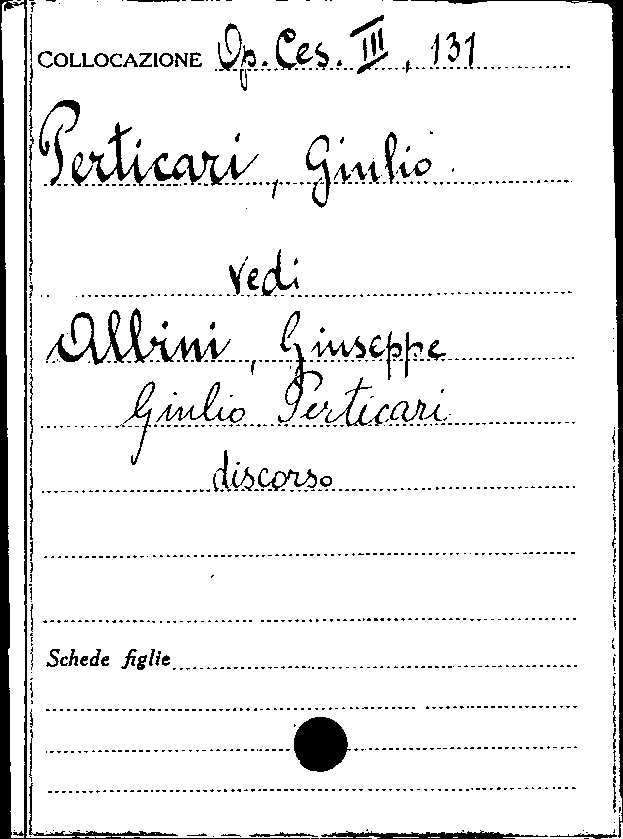 COLLOCAZIONE Op. Ces. III, 131
Perticari, Giulio.
vedi
Albini, Giuseppe
Giulio Perticari
discorso
Schede figlie